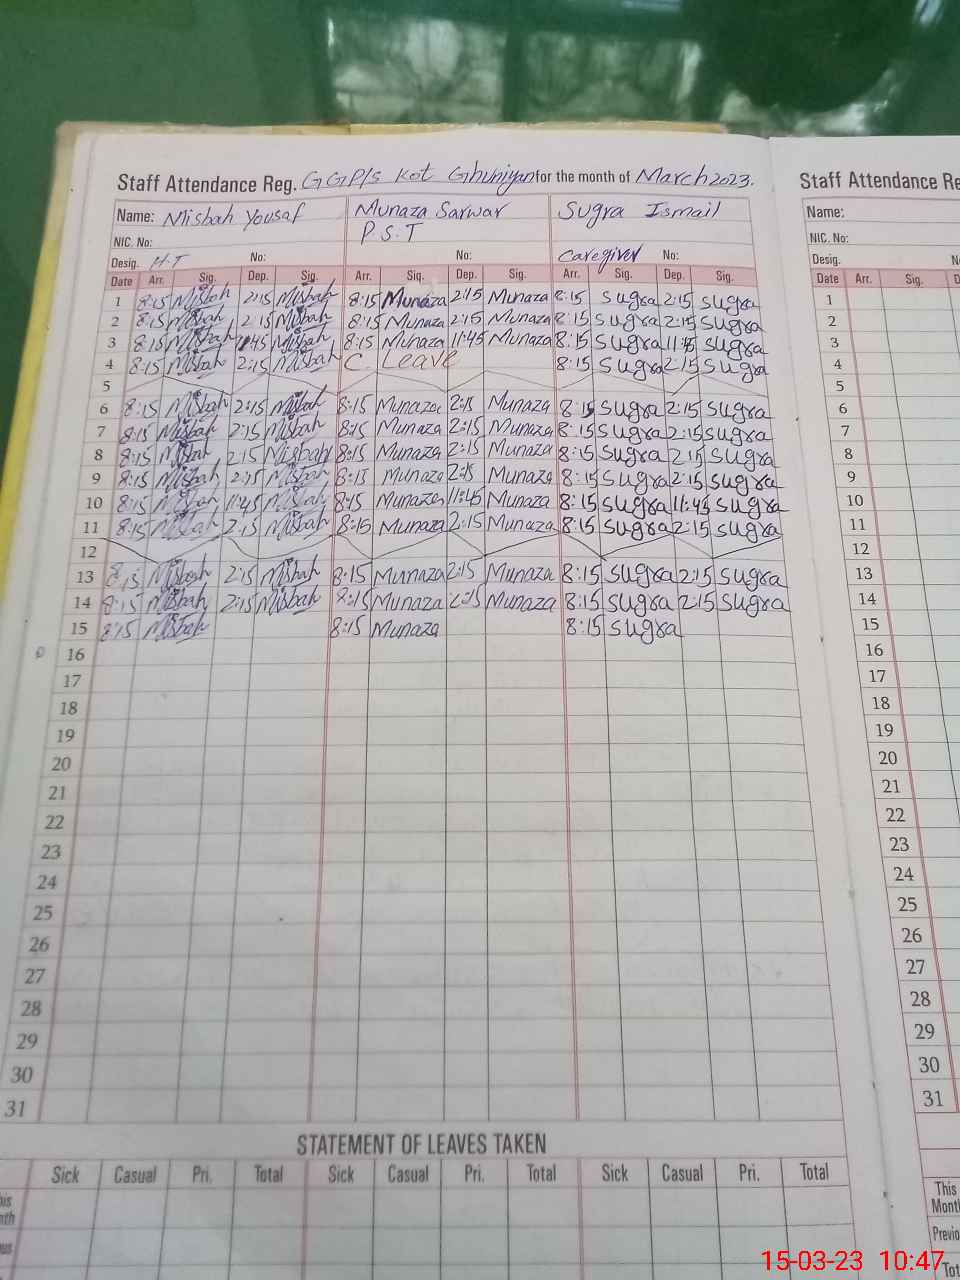 Staff Attendance Reg. GGP/s Kot Ghuniyan for the month of March 2023.
Staff Attendance Re
Name: Misbah Yousaf Munaza Sarwar Sugra Ismail
Name:
NIC. No: P.S.T
NIC. No:
Desig. H.T No: No: Caregiver No:
Desig. N
Date Arr. Sig. Dep. Sig. Arr. Sig. Dep. Sig. Arr. Sig. Dep. Sig.
Date Arr. Sig. D
1 8:15 Misbah 2:15 Misbah 8:15 Munaza 2:15 Munaza 8:15 Sugra 2:15 Sugra
2 8:15 Misbah 2:15 Misbah 8:15 Munaza 2:15 Munaza 8:15 Sugra 2:15 Sugra
3 8:15 Misbah 11:45 Misbah 8:15 Munaza 11:45 Munaza 8:15 Sugra 11:45 Sugra
4 8:15 Misbah 2:15 Misbah C. Leave 8:15 Sugra 2:15 Sugra
5
6 8:15 Misbah 2:15 Misbah 8:15 Munaza 2:15 Munaza 8:15 Sugra 2:15 Sugra
7 8:15 Misbah 2:15 Misbah 8:15 Munaza 2:15 Munaza 8:15 Sugra 2:15 Sugra
8 8:15 Misbah 2:15 Misbah 8:15 Munaza 2:15 Munaza 8:15 Sugra 2:15 Sugra
9 8:15 Misbah 2:15 Misbah 8:15 Munaza 2:15 Munaza 8:15 Sugra 2:15 Sugra
10 8:15 Misbah 11:45 Misbah 8:15 Munaza 11:45 Munaza 8:15 Sugra 11:45 Sugra
11 8:15 Misbah 2:15 Misbah 8:15 Munaza 2:15 Munaza 8:15 Sugra 2:15 Sugra
12
13 8:15 Misbah 2:15 Misbah 8:15 Munaza 2:15 Munaza 8:15 Sugra 2:15 Sugra
14 8:15 Misbah 2:15 Misbah 8:15 Munaza 2:15 Munaza 8:15 Sugra 2:15 Sugra
15 8:15 Misbah 8:15 Munaza 8:15 Sugra
16
17
18
19
20
21
22
23
24
25
26
27
28
29
30
31
1
2
3
4
5
6
7
8
9
10
11
12
13
14
15
16
17
18
19
20
21
22
23
24
25
26
27
28
29
30
31
STATEMENT OF LEAVES TAKEN
Sick Casual Pri. Total Sick Casual Pri. Total Sick Casual Pri. Total
This
Month
Previo
Tot
15-03-23 10:47